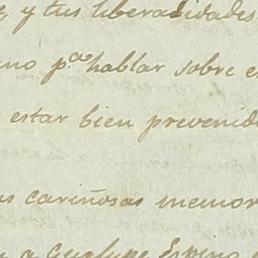 y tus liberalidades
no p.ª hablar sobre e
estar bien prevenid
s cariñosas memor
a Gualupe Espino